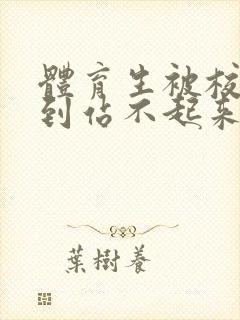 體育生被校
到佔不起來
葉樹養